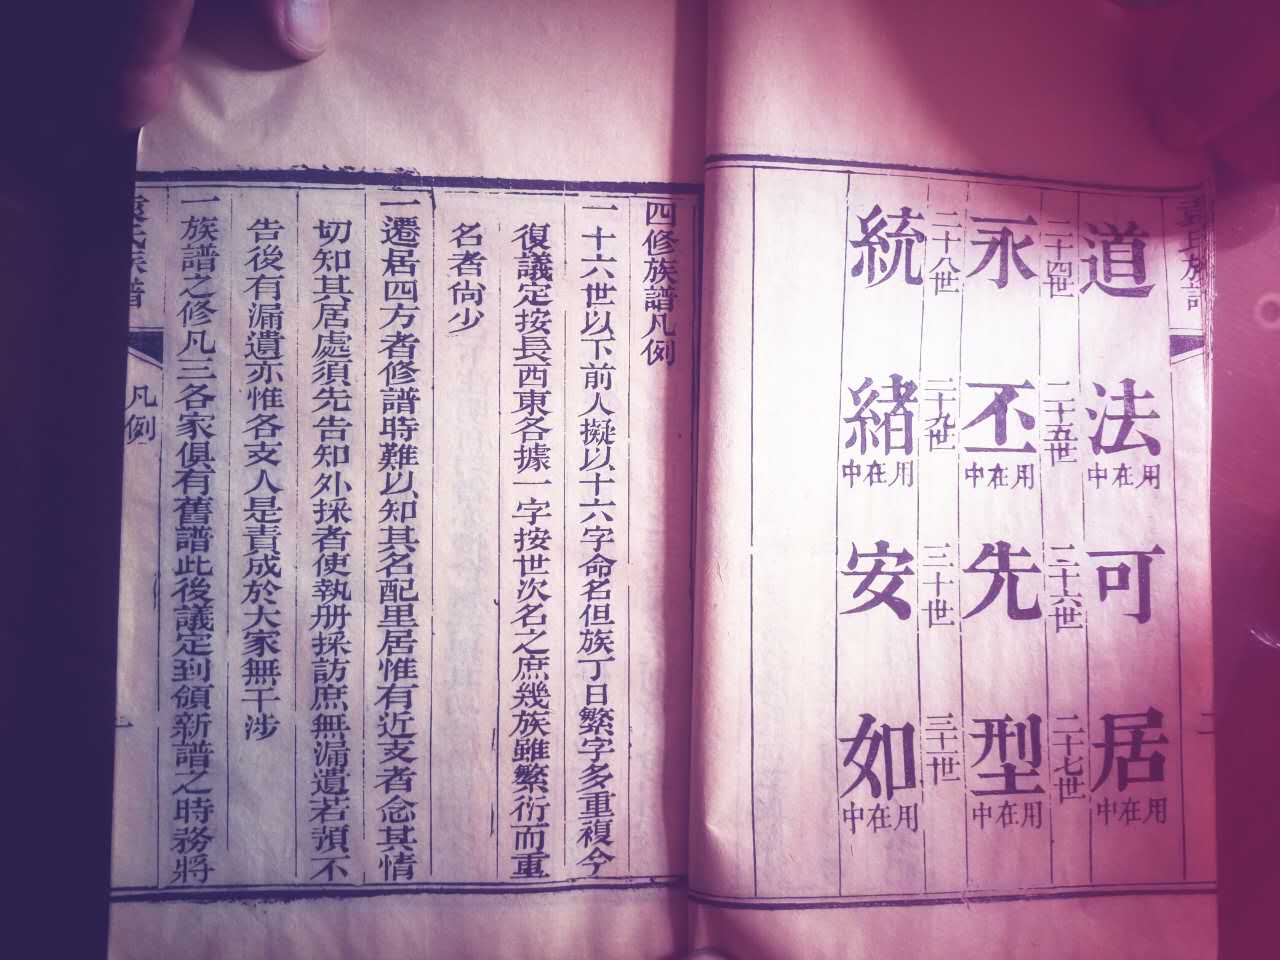 袁氏族譜
二
道 法用在中 可 居用在中
二十四世 二十五世 二十六世 二十七世
永 丕用在中 先 型用在中
二十八世 二十九世 三十世 三十一世
統 緒用在中 安 如用在中
四修族譜凡例
一十六世以下前人擬以十六字命名但族丁日繁字多重複今
復議定按長西東各據一字按世次名之庶幾族雖繁衍而重
名者尚少
一遷居四方者修譜時難以知其名配里居惟有近支者念其情
切知其居處須先告知外採者使執册採訪庶無漏遺若預不
告後有漏遺亦惟各支人是責成於大家無干涉
一族譜之修凡三各家俱有舊譜此後議定到領新譜之時務將
袁氏族譜 凡例